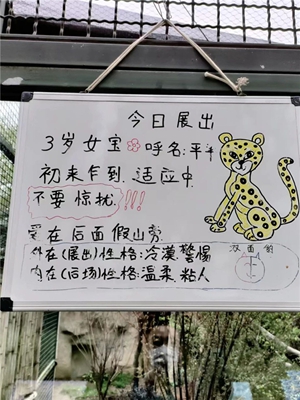 今日展出
3岁女宝 呼名:平平
初来乍到.适应中
不要惊扰!!!
爱在后面假山旁
外在(展出)性格:冷漠.警惕
内在(后场)性格:温柔.粘人
双面豹